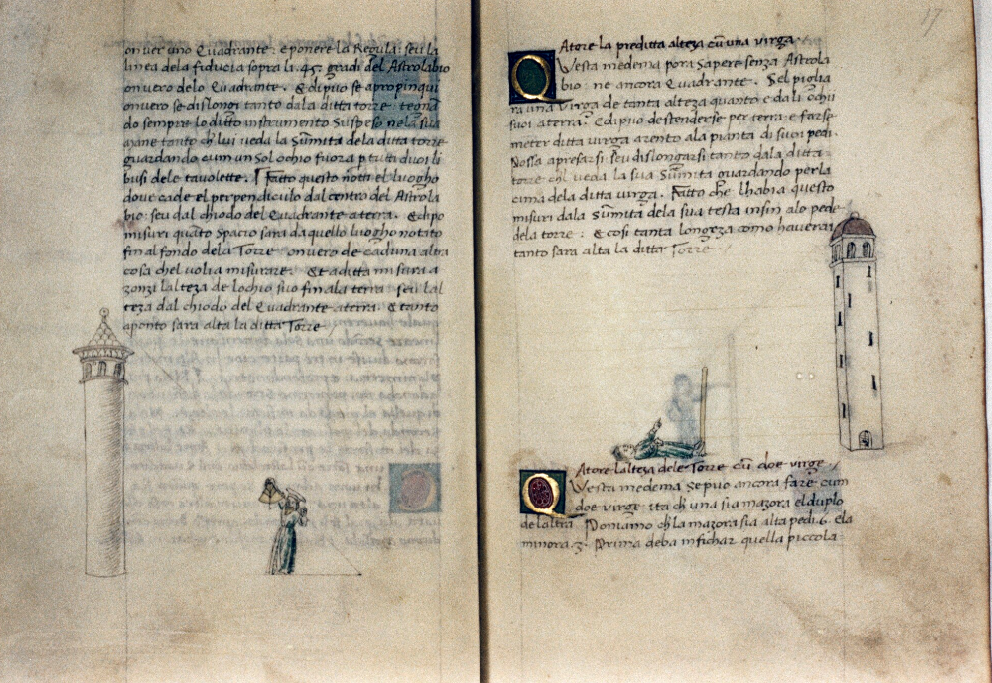 on vero uno Quadrante: e ponere la Regula: seu la
linea dela fiducia sopra la .45. gradi del Astrolabio
on vero delo Quadrante. Et dipuo se apropinqui
on vero se dislongi tanto dala ditta torre: tegna
do sempre lo ditto instrumento suspeso nela sua
mane tanto ch lui veda la Sumita dela ditta torre
guardando cum un Sol ochio fuora p tutti duoi li
busi dele tavolette. Fatto questo notti el luogho
dove cade el perpendiculo dal centro del Astrola
bio: seu dal chiodo del Quadrante a terra. Et dipo
misuri quato Spacio sara da quello luogho notato
fin al fondo dela Torre on vero de caduna altra
cosa chel volia misurare. Et a ditta misura a
zonzi lalteza de lochio suo fin ala terra seu lal
teza dal chiodo del Quadrante a terra. Et tanto
aponto sara alta la ditta Torre
17
A tore la preditta alteza cu una virga
Questa medema pora Sapere senza Astrola
bio: ne ancora Quadrante. Sel piglia
ra una Virga de tanta alteza quanto e da li ochii
suoi a terra. Et dipuo destenderse per terra e farse
metter ditta virga arento ala pianta di suoi pedi.
Possa apresarsi seu dislongarsi tanto dala ditta
torre chl veda la sua Sumita guardando per la
cima dela ditta virga. Fatto che lhabia questo
misuri dala Sumita dela sua testa insin alo pede
dela torre: Et cosi tanta longeza como havera
tanto sara alta la ditta Torre
A tore lalteza dele Torre cu doe virge
Questa medema Se puo ancora fare cum
doe virge: ita ch una sia mazora el duplo
de laltra. Poniamo ch la mazora sia alta pedi .6. e la
minora .3. Prima deba infichar quella piccola